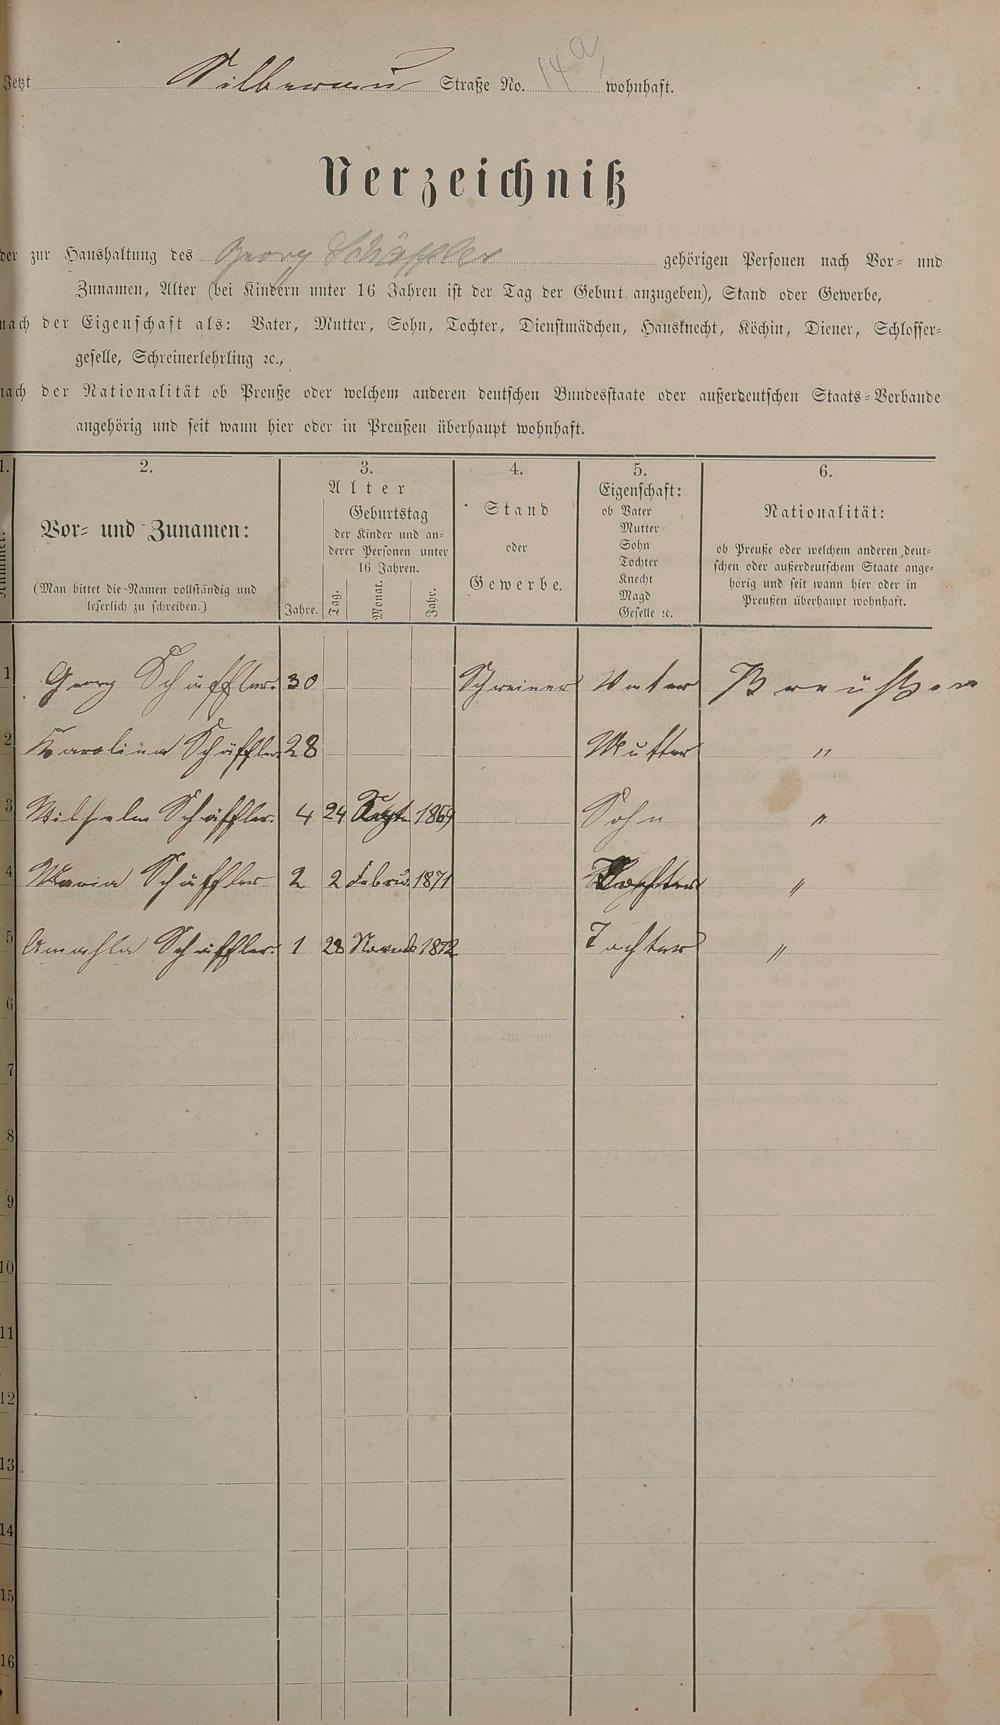 Jetzt Silberau Straße No. 14a wohnhaft.
Verzeichniß
der zur Haushaltung des Georg Schäffler gehörigen Personen nach Vor- und
Zunamen, Alter (bei Kindern unter 16 Jahren ist der Tag der Geburt anzugeben), Stand oder Gewerbe,
nach der Eigenschaft als: Vater, Mutter, Sohn, Tochter, Dienstmädchen, Hausknecht, Köchin, Diener, Schlosser-
geselle, Schreinerlehrling ꝛc.,
nach der Nationalität ob Preuße oder welchem anderen deutschen Bundesstaate oder außerdeutschen Staats-Verbande
angehörig und seit wann hier oder in Preußen überhaupt wohnhaft.
1. 2. 3. 4. 5. 6.
Nummer:
Vor- und Zunamen:
(Man bittet die Namen vollständig und
leserlich zu schreiben.)
Alter
Jahre.
Geburtstag
der Kinder und an-
derer Personen unter
16 Jahren.
Tag. Monat. Jahr.
Stand
oder
Gewerbe.
Eigenschaft:
ob Vater
Mutter
Sohn
Tochter
Knecht
Magd
Geselle ꝛc.
Nationalität:
ob Preuße oder welchem anderen deut-
schen oder außerdeutschem Staate ange-
hörig und seit wann hier oder in
Preußen überhaupt wohnhaft.
1 Georg Schäffler 30 Schreiner Vater Preußen
2 Karolina Schäffler 28 Mutter "
3 Wilhelm Schäffler 4 24 1869 Sohn "
4 Maria Schäffler 2 2 Febru. 1871 Tochter "
5 Schäffler 1 28 Novemb 1872 Tochter "
6
7
8
9
10
11
12
13
14
15
16